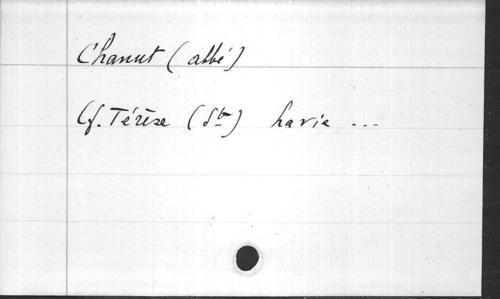 Chanut (abbé)
Cf. Térèse (Ste) La vie ...